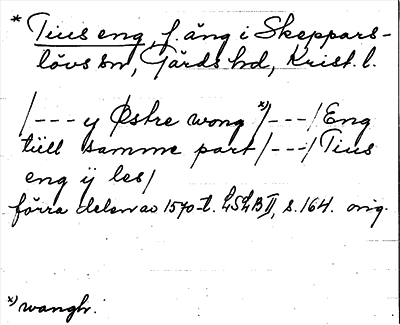 * Tius eng, f. äng i Skeppars-
lövs sn, Gärds hd, Krist. l.
/--- y Østre wong *)/---/ Eng
tiill samme part /---/ Tius
eng ÿ les/
förra delen av 1570-t. LSLB II, s. 164. orig.
*) wangh.